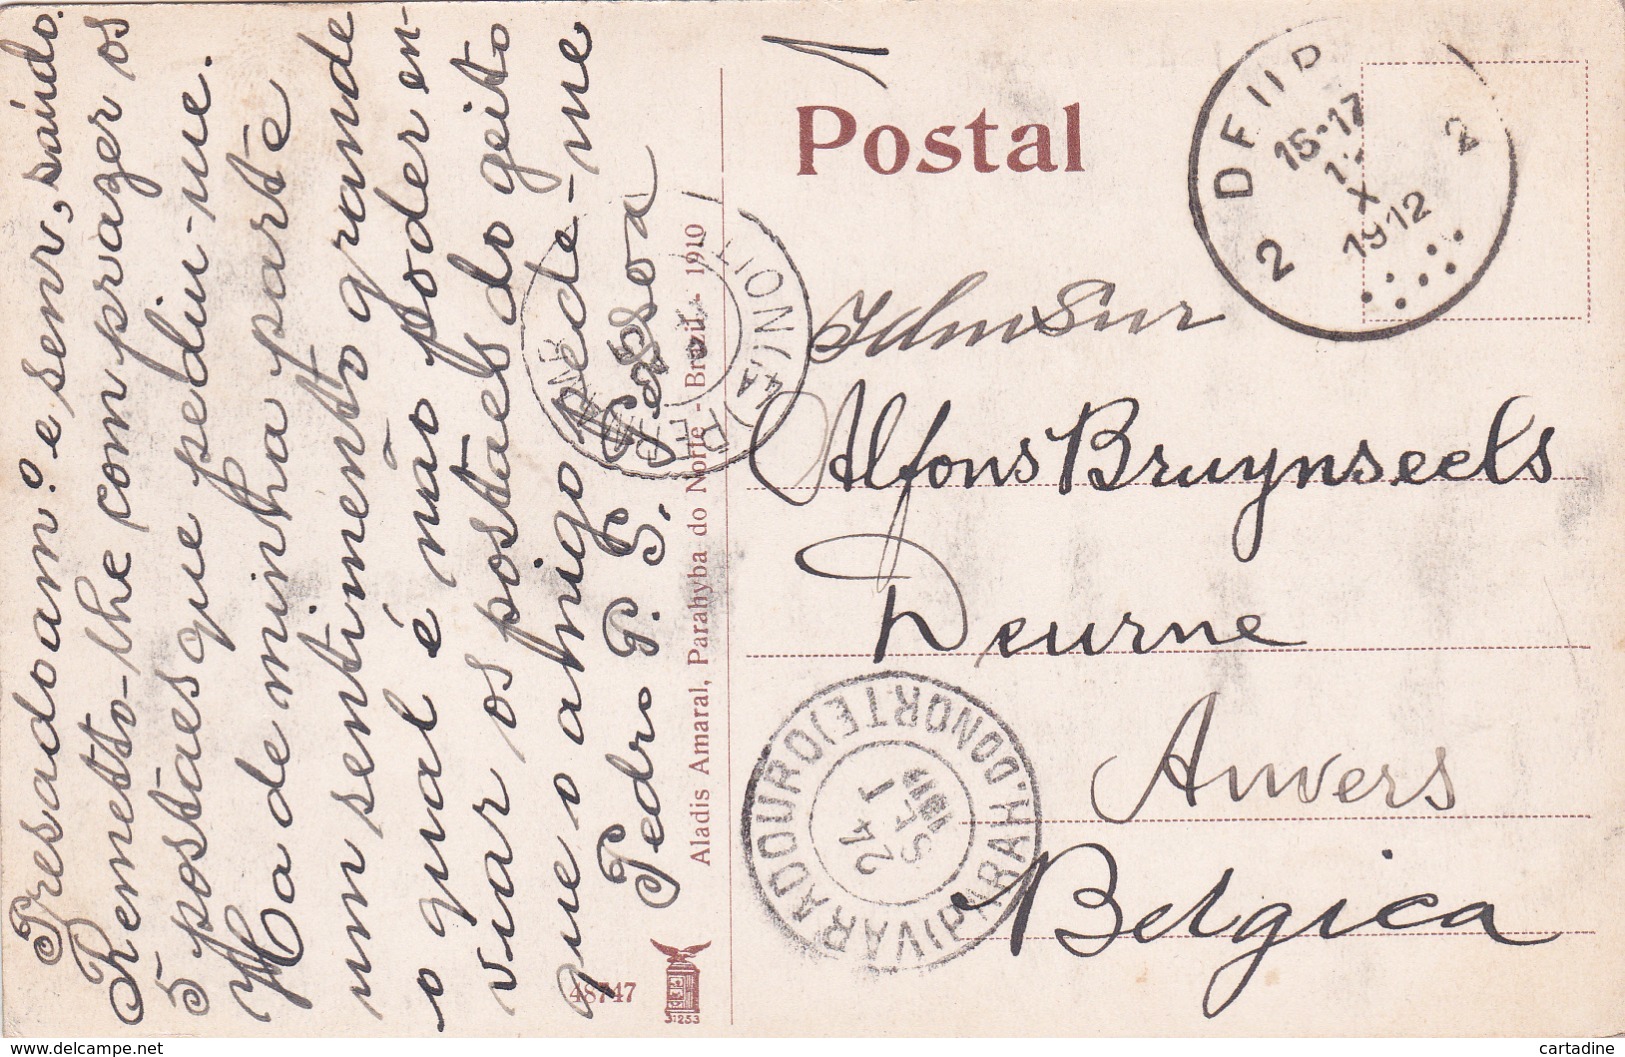 Presado am.º e senr, saúdo.
Remetto-lhe com prazer os
5 postaes que pediu-me.
Ha de minha parte
um sentimento grande
o qual é não poder en-
viar os postaes do geito
que o amigo pede-me
Pedro P. S. Pessoa
Aladis Amaral, Parahyba do Norte - Brazil - 1910
48747
31253
1
Postal
Alfons Bruynseels
Deurne
Anvers
Belgica
2
15-17
X
1912
2
24
SET
PARAHYBA DO NORTE
cartadine
https://www.delcampe.net